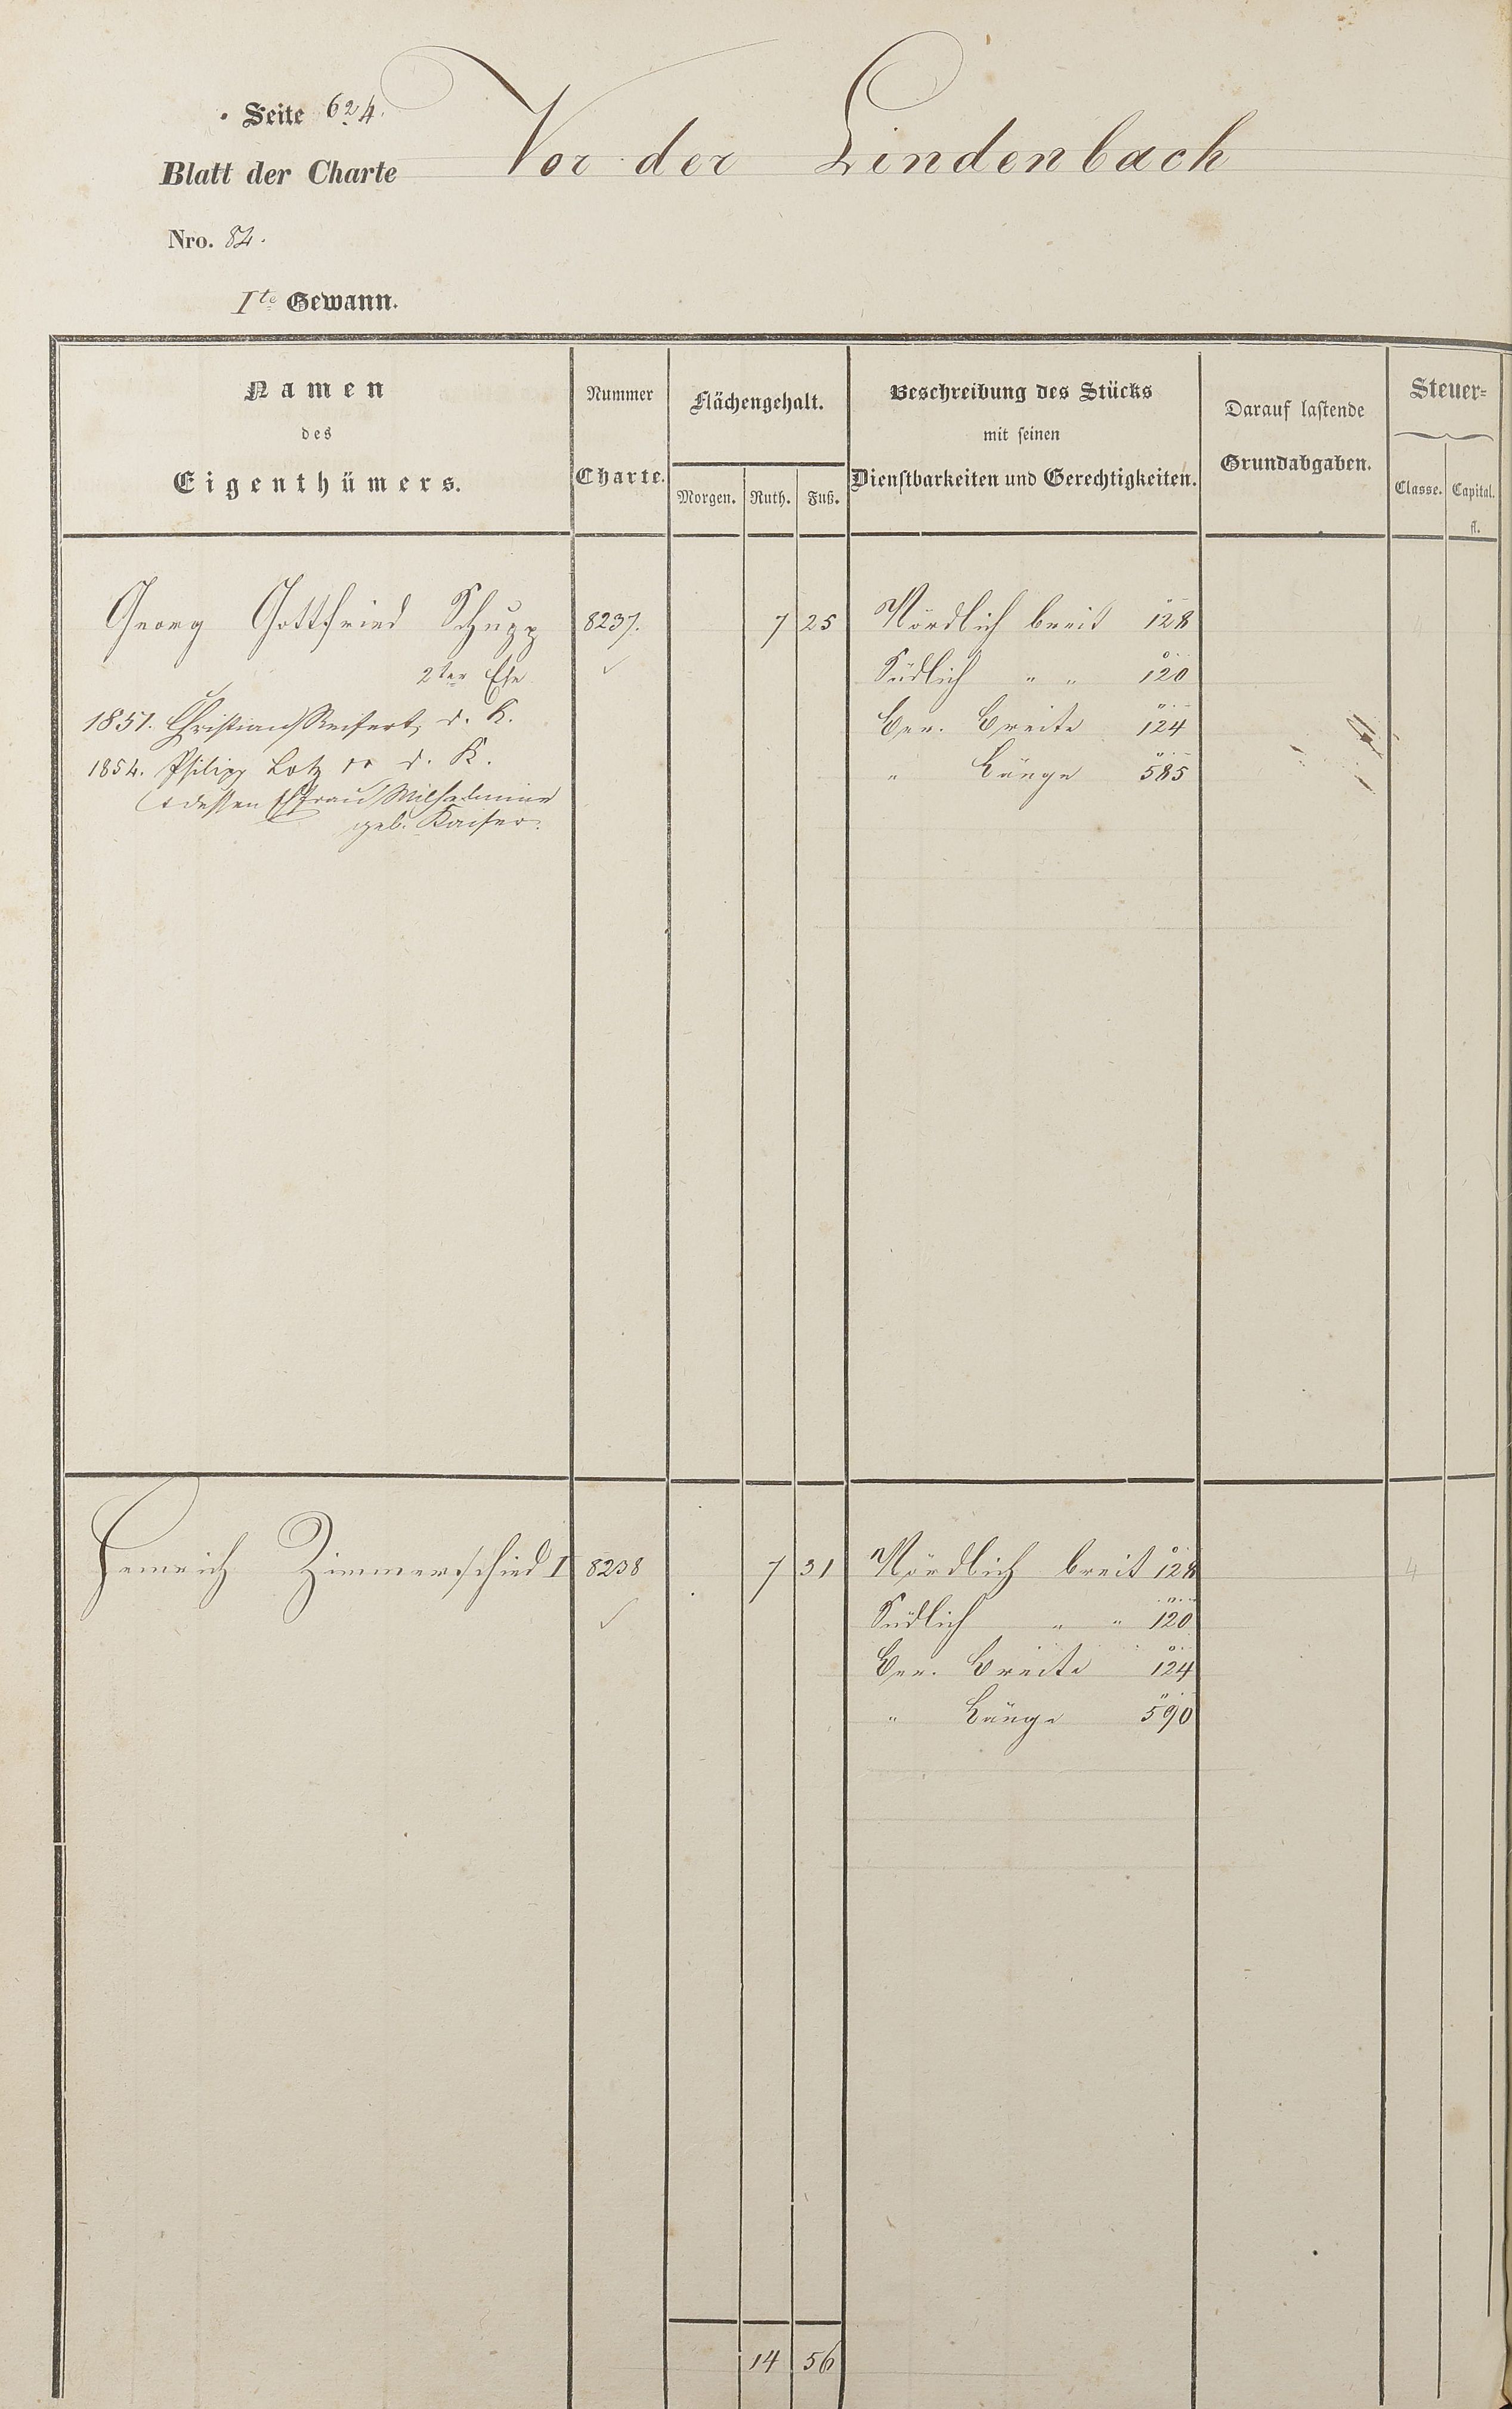 Seite 624.
Vor der Lindenbach
Blatt der Charte
Nro. 82.
Ite Gewann.
Namen
des
Eigenthümers.
Nummer
Charte.
Flächengehalt.
Morgen. Ruth. Fuß.
Beschreibung des Stücks
mit seinen
Dienstbarkeiten und Gerechtigkeiten.
Darauf lastende
Grundabgaben.
Steuer=
Classe. Capital.
fl.
Georg Gottfried Schupp 8237. 7 25 Nördlich breit 128
2ter Ehe Südlich " " 120
1851. Christian Reifert, d. K. Ber. Breite 124
1854. Philipp Lotz d. K. " Länge 585
dessen Ehfrau Wilhelmine
geb. Kaiser.
Heinrich Zimmerschied I 8238 7 31 Nördlich breit 128 4
Südlich " " 120
Ber. Breite 124
" Länge 590
14 56